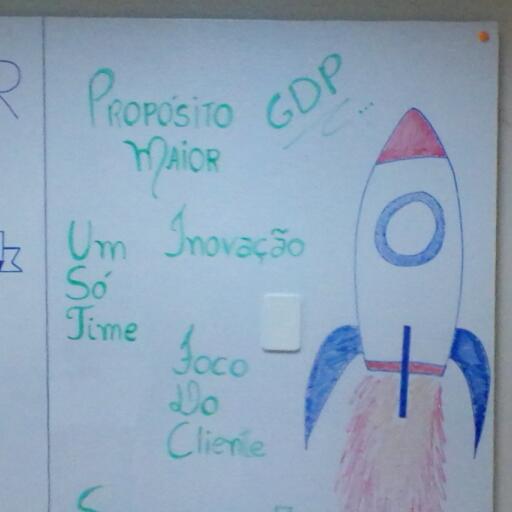 R
Propósito
Maior
GDP...
Um
Só
Time
Inovação
Foco
Do
Cliente